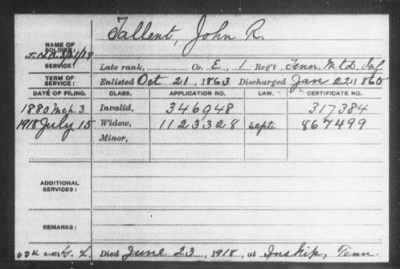 Tallent, John R.
NAME OF
SOLDIER:
SERVICE: Late rank, Co. E, 1 Reg't Tenn. Mtd. Inf.
TERM OF
SERVICE: Enlisted Oct 21, 1863 Discharged Jan 22, 1865
DATE OF FILING. CLASS. APPLICATION NO. LAW. CERTIFICATE NO.
1880 Mch. 3 Invalid, 346948 317384
1918 July 15 Widow, 1123328 Sept. 867499
Minor,
ADDITIONAL
SERVICES:
REMARKS:
Died June 23, 1918, at Inskip, Tenn.